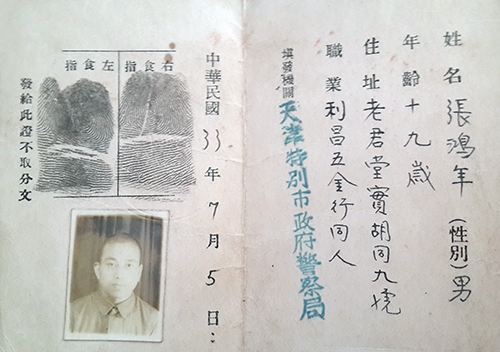 姓名 張鴻年 (性別) 男
年齡 十九歲
住址 老君堂實胡同九號
職業 利昌五金行同人
填發機關 天津特別市政府警察局
中華民國 33 年 7 月 5 日
右食指
左食指
發給此證不取分文